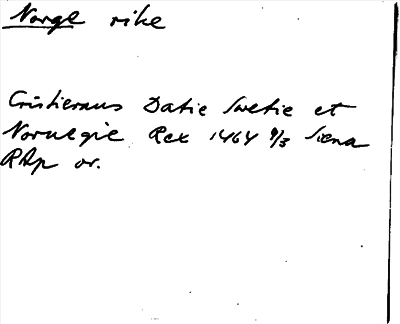 Norge rike
Cristiernus Datie Swetie et
Noruegie Rex 1464 9/3 Siena
RAp or.